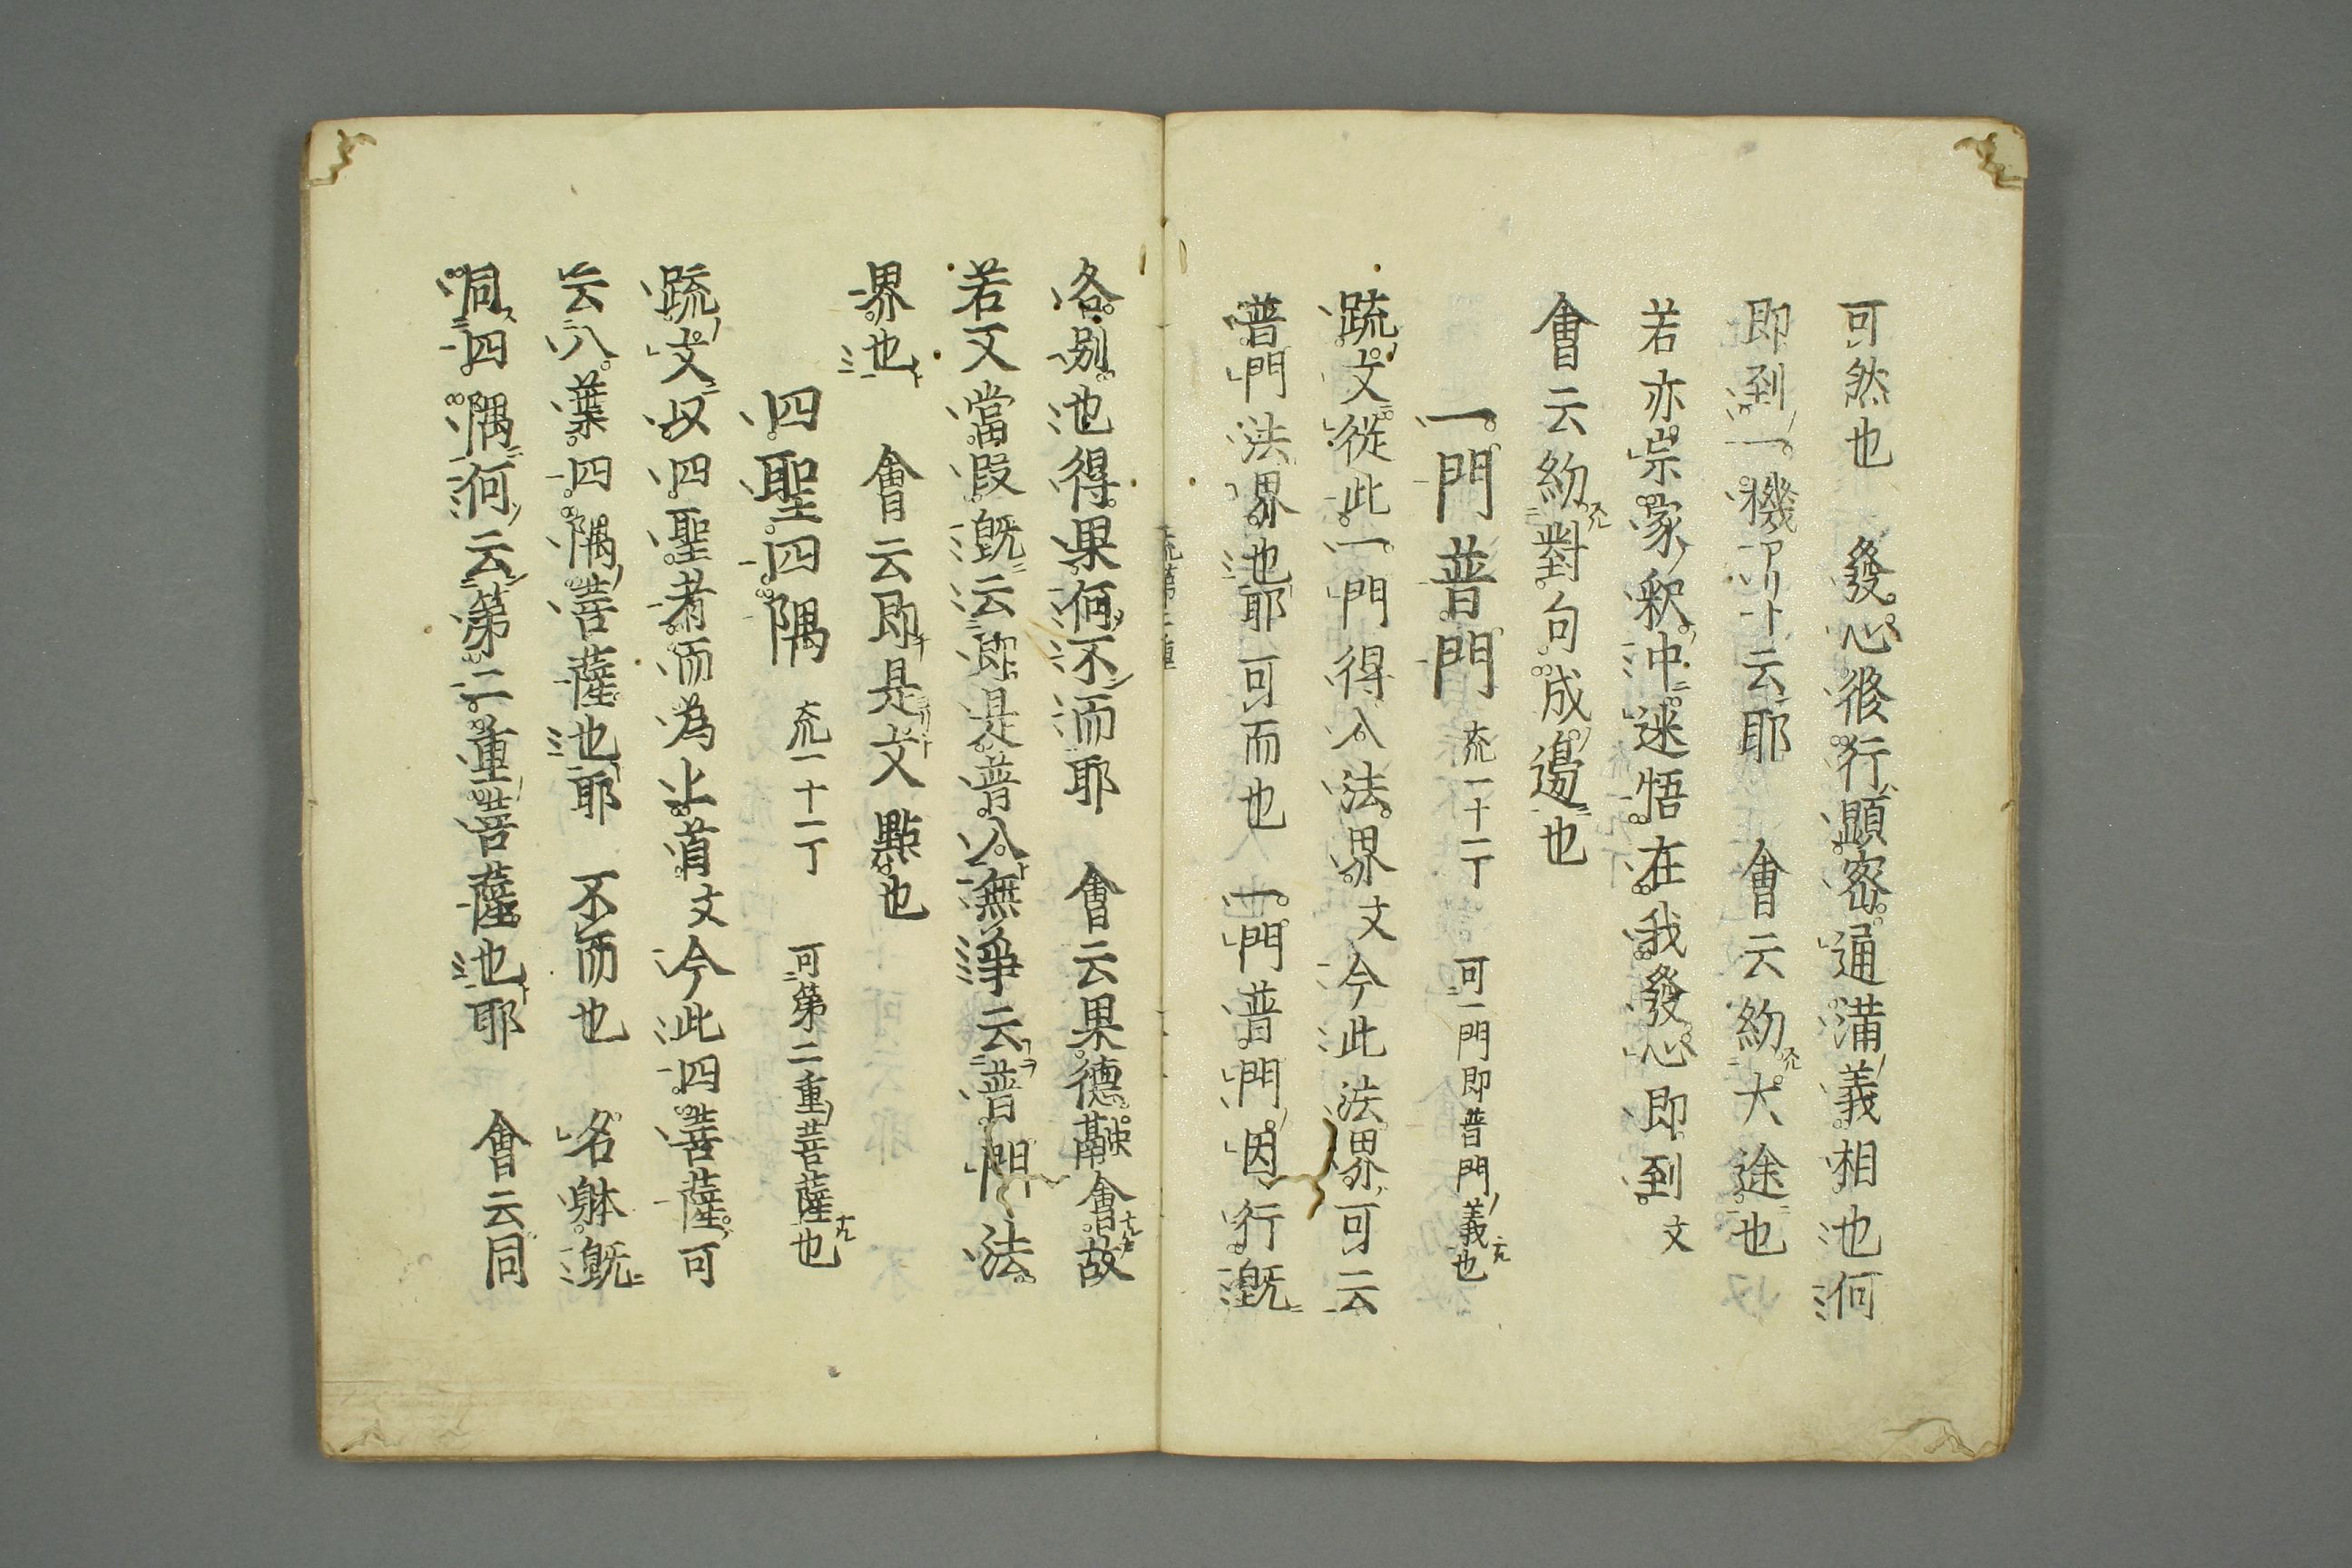 可然也　發心後行顕密通満義相也何
即到一機アリト云耶　會云約大途也
若亦宗家釈中迷悟在我發心即到文
會云約對句成邊也
一門普門　一十二丁　可一門即普門義也
疏文從此一門得入法界文今此法界可云
普門法界也耶　可而也　一門普門因行既
各別也得果何不而耶　會云果德融會故
若又當段既云即是普入無諍云普門法
界也　會云即是文點也
四聖四隅　一十二丁　可第二重菩薩也
疏文以四聖者而為上首文今此四菩薩可
云八葉四隅菩薩也耶　不而也　名躰既
同四隅何云第二重菩薩也耶　會云同